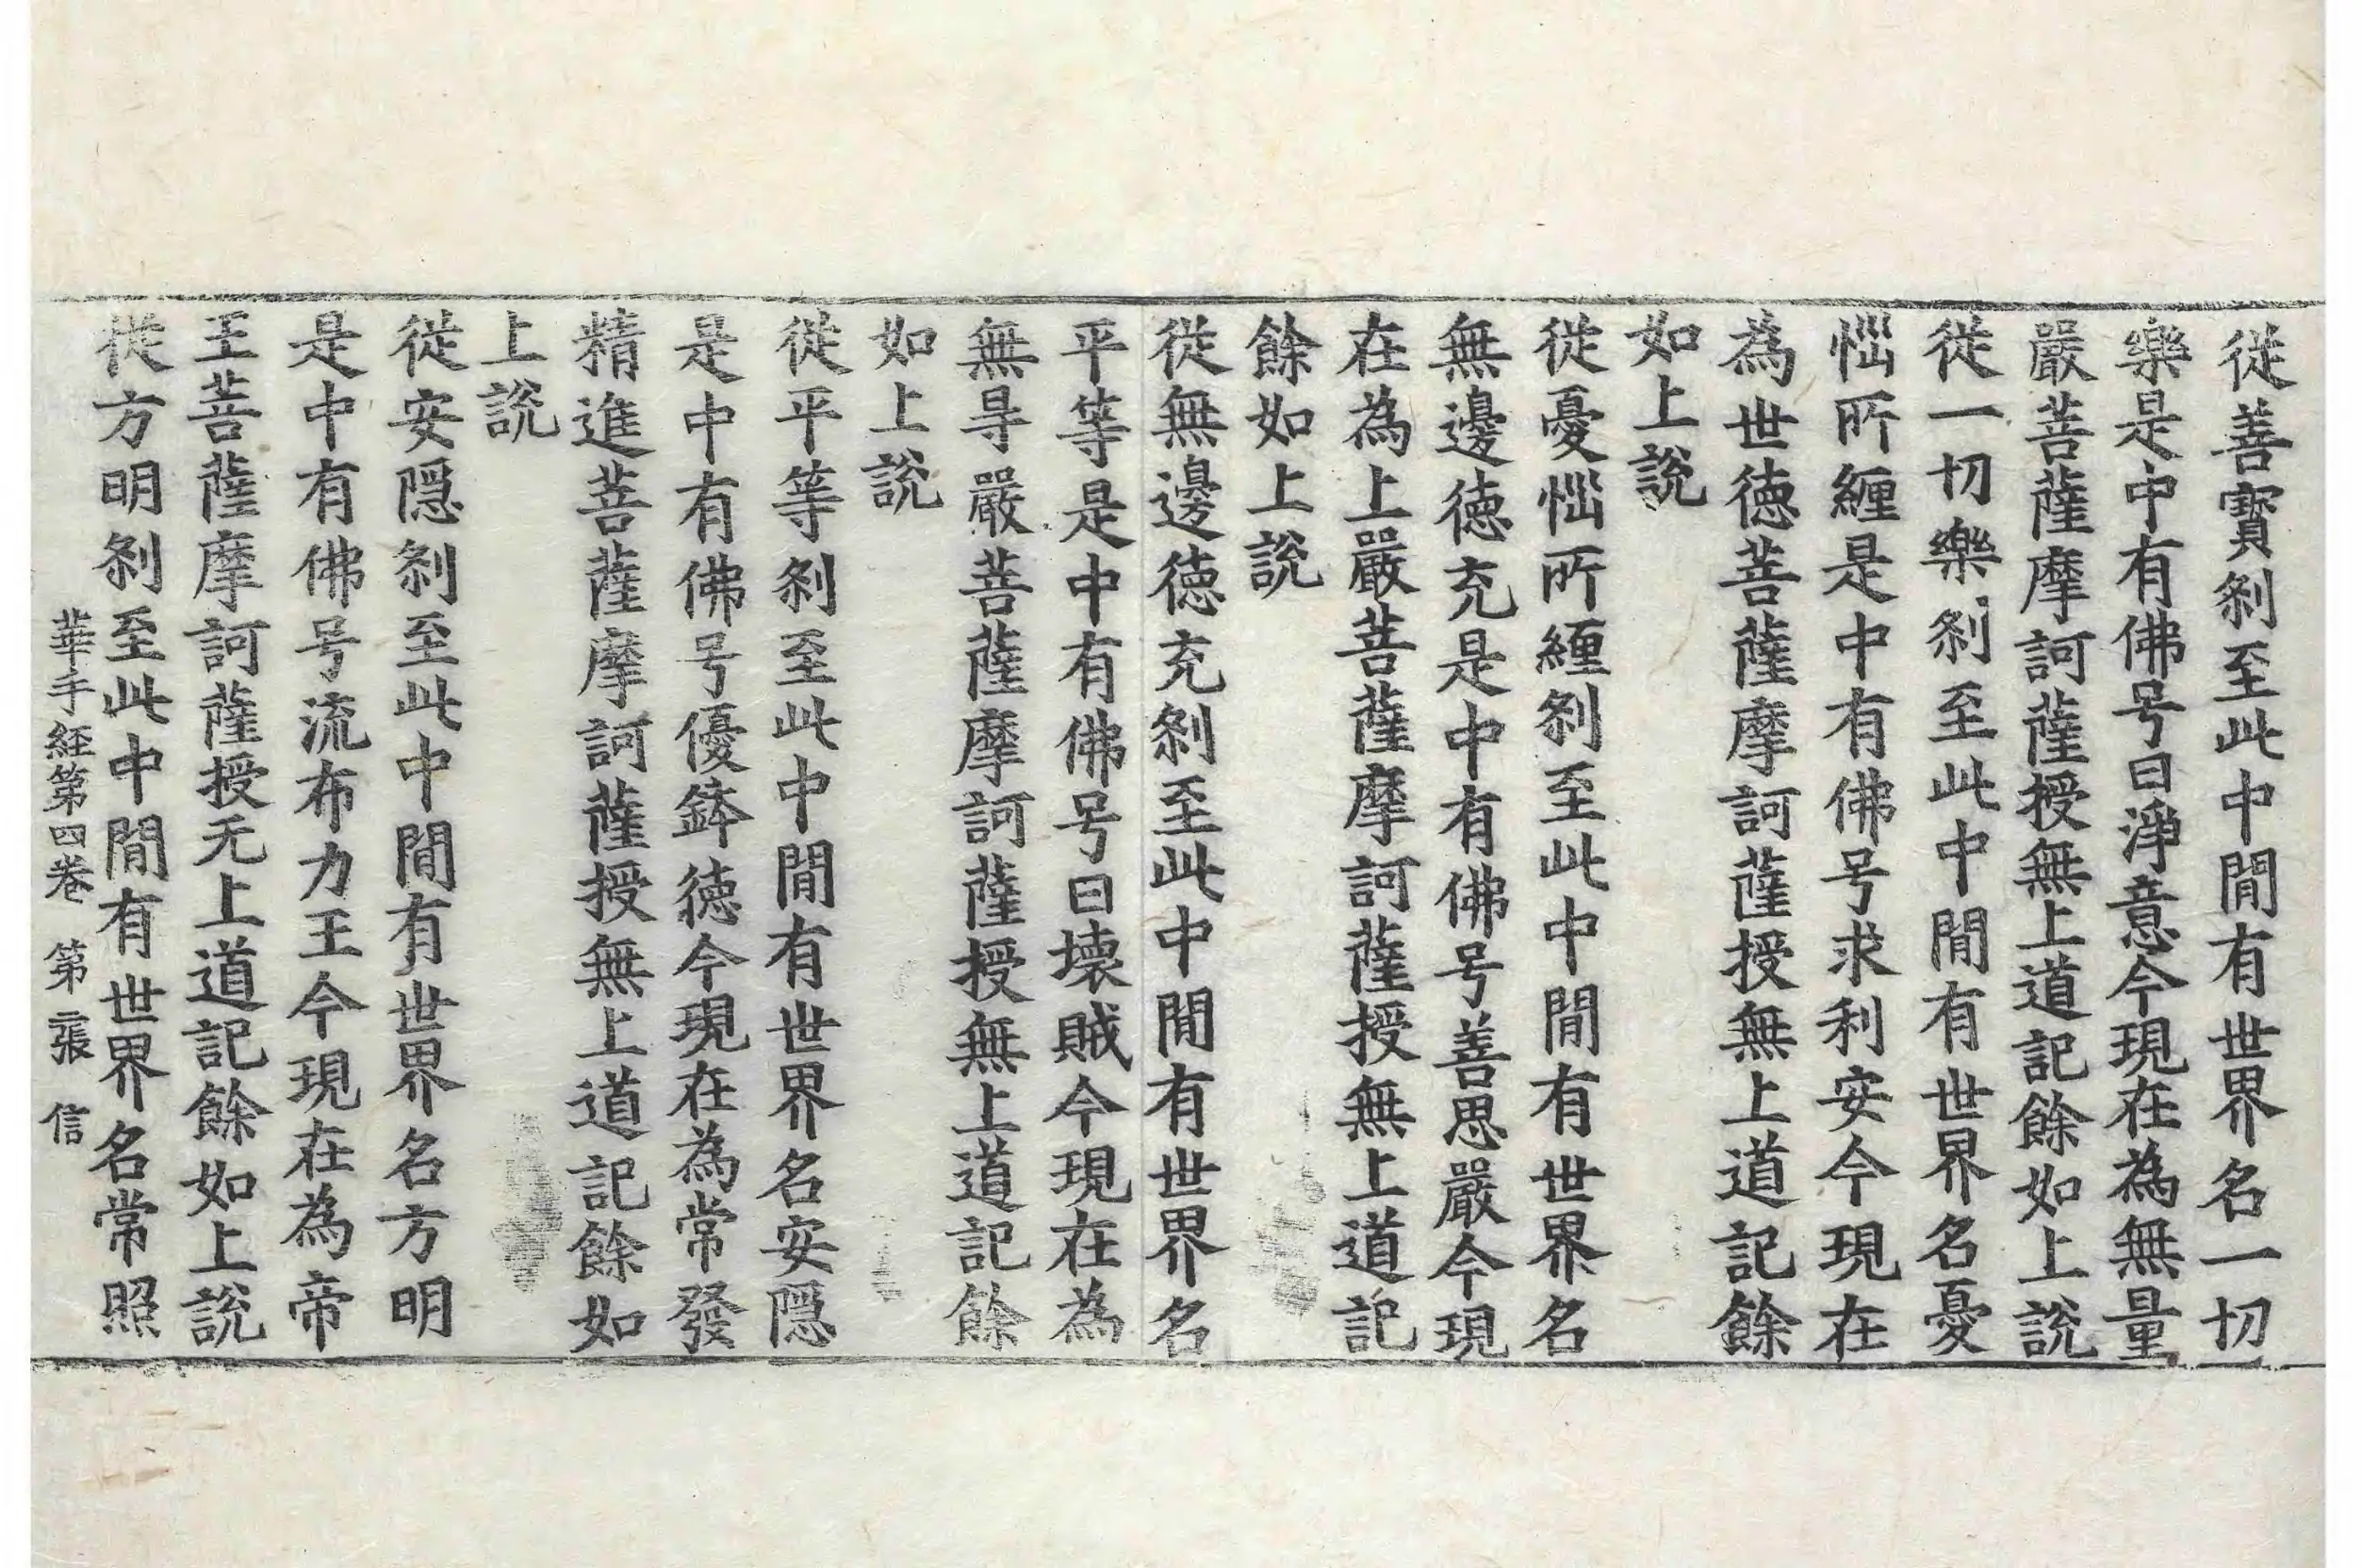 従善寳刹至此中閒有世界名一切
樂是中有佛号曰淨意今現在為無量
嚴菩薩摩訶薩授無上道記餘如上說
従一切樂刹至此中閒有世界名憂
惱所纏是中有佛号求利安今現在
為世徳菩薩摩訶薩授無上道記餘
如上說
従憂惱所纏刹至此中閒有世界名
無邊徳充是中有佛号善思嚴今現
在為上嚴菩薩摩訶薩授無上道記
餘如上說
従無邊徳充刹至此中閒有世界名
平等是中有佛号曰壊賊今現在為
無㝵嚴菩薩摩訶薩授無上道記餘
如上說
従平等刹至此中閒有世界名安隠
是中有佛号優鉢徳今現在為常發
精進菩薩摩訶薩授無上道記餘如
上說
従安隠刹至此中閒有世界名方明
是中有佛号流布力王今現在為帝
王菩薩摩訶薩授无上道記餘如上說
従方明刹至此中閒有世界名常照
華手経第四卷 第二張 信